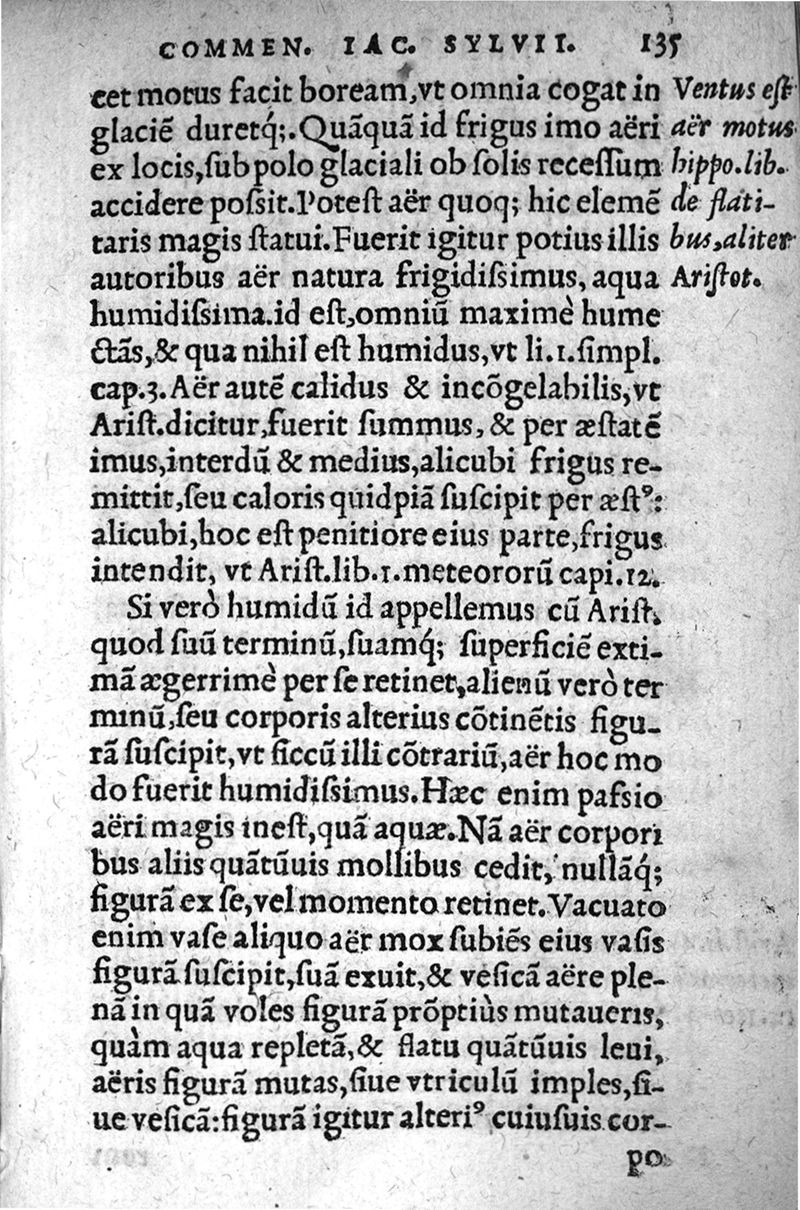 COMMEN. IAC. SYLVII. 135
cet motus facit boream, vt omnia cogat in
glaciē duretq́;. Quāquā id frigus imo aëri
ex locis, ſub polo glaciali ob ſolis receſſum
accidere poſsit. Poteſt aër quoq; hic elemē
taris magis ſtatui. Fuerit igitur potius illis
autoribus aër natura frigidiſsimus, aqua
humidiſsima. id eſt, omniū maximè hume
ctãs, & qua nihil eſt humidus, vt li. 1. ſimpl.
cap. 3. Aër autē calidus & incōgelabilis, vt
Ariſt. dicitur, fuerit ſummus, & per æſtatē
imus, interdū & medius, alicubi frigus re-
mittit, ſeu caloris quidpiā ſuſcipit per æſtꝰ:
alicubi, hoc eſt penitiore eius parte, frigus
intendit, vt Ariſt. lib. 1. meteororū capi. 12.
Si verò humidū id appellemus cū Ariſt.
quod ſuū terminū, ſuamq́; ſuperficiē exti-
mā ægerrimè per ſe retinet, alienū verò ter
minū, ſeu corporis alterius cōtinētis figu-
rā ſuſcipit, vt ſiccū illi cōtrariū, aër hoc mo
do fuerit humidiſsimus. Hæc enim paſsio
aëri magis ineſt, quā aquæ. Nā aër corpori
bus aliis quātūuis mollibus cedit, nullāq́;
figurā ex ſe, vel momento retinet. Vacuato
enim vaſe aliquo aër mox ſubiēs eius vaſis
figurā ſuſcipit, ſuā exuit, & veſicā aëre ple-
nā in quā voles figurā prōptiùs mutaueris,
quàm aqua repletā, & flatu quātūuis leui,
aëris figurā mutas, ſiue vtriculū imples, ſi-
ue veſicā: figurā igitur alteriꝰ cuiuſuis cor-
po
Ventus eſt
aër motus
hippo. lib.
de flati-
bus, aliter
Ariſtot.